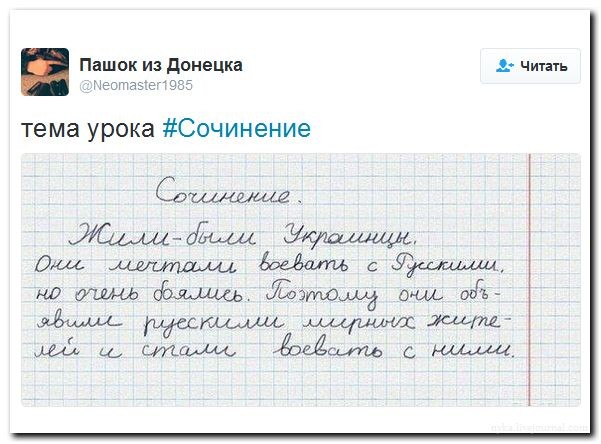 Пашок из Донецка
@Neomaster1985
Читать
тема урока #Сочинение
Сочинение.
Жили-были Украинцы.
Они мечтали воевать с Русскими,
но очень боялись. Поэтому они объ-
явили русскими мирных жите-
лей и стали воевать с ними.
nyka.livejournal.com